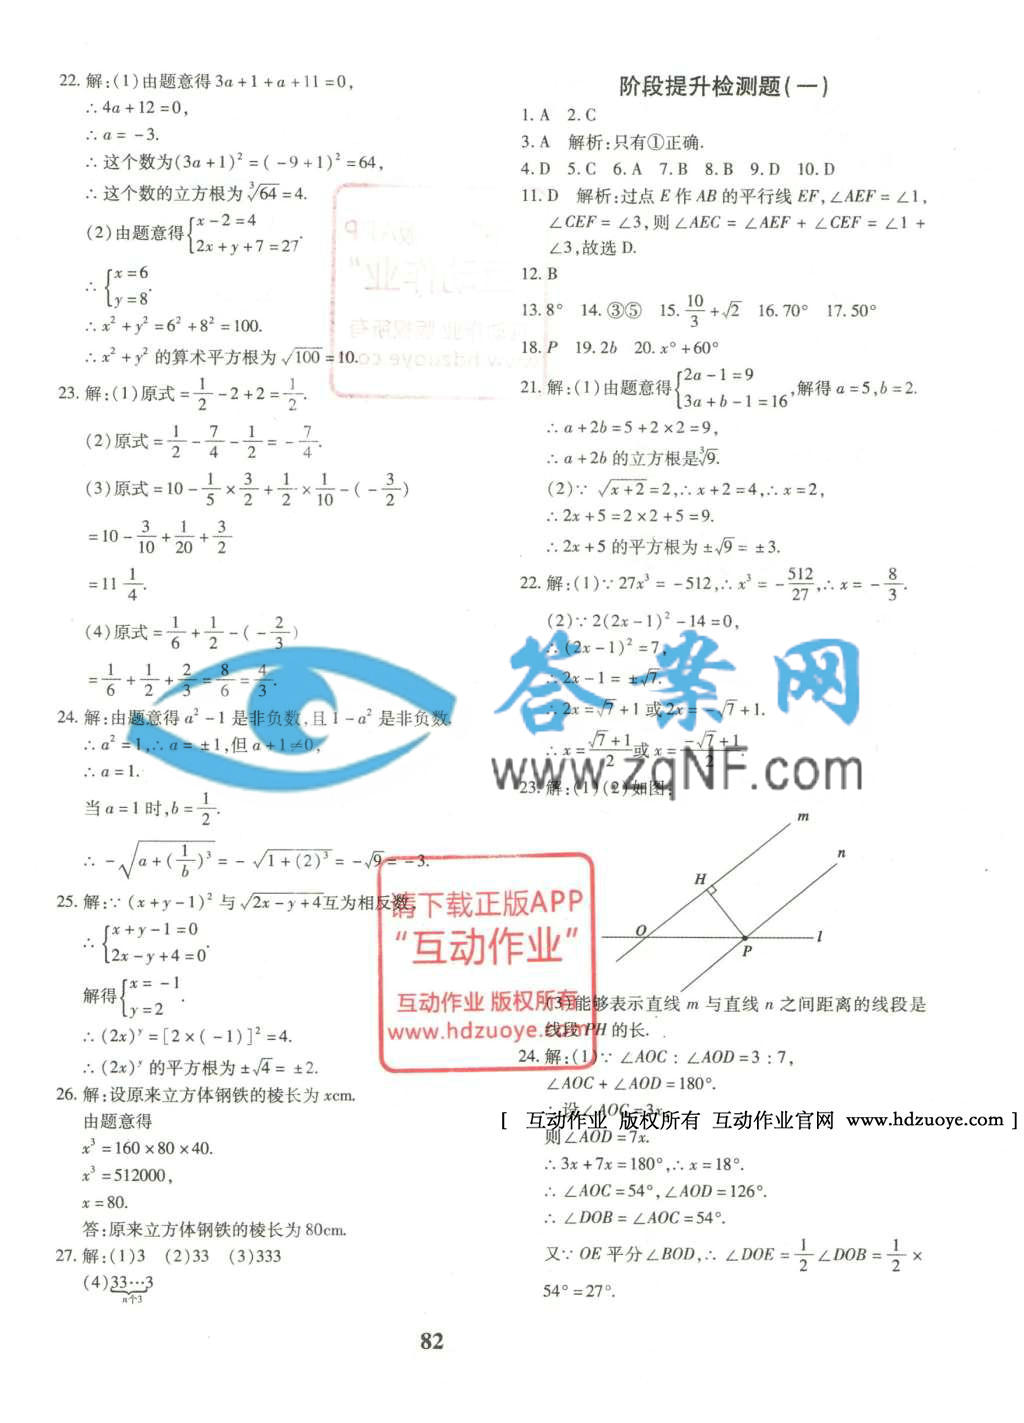 22. 解:(1)由题意得3a+1+a+11=0,
∴4a+12=0,
∴a=-3.
∴这个数为(3a+1)²=(-9+1)²=64,
∴这个数的立方根为³√64=4.
(2)由题意得{x-2=4
2x+y+7=27.
∴{x=6
y=8.
∴x²+y²=6²+8²=100.
∴x²+y²的算术平方根为√100=10.
23. 解:(1)原式=1/2-2+2=1/2.
(2)原式=1/2-7/4-1/2=-7/4.
(3)原式=10-1/5×3/2+1/2×1/10-(-3/2)
=10-3/10+1/20+3/2
=11 1/4.
(4)原式=1/6+1/2-(-2/3)
=1/6+1/2+2/3=8/6=4/3.
24. 解:由题意得a²-1是非负数,且1-a²是非负数.
∴a²=1,∴a=±1,但a+1≠0,
∴a=1.
当a=1时,b=1/2.
∴-√(a+(1/b)³)=-√(1+(2)³)=-√9=-3.
25. 解:∵(x+y-1)²与√(2x-y+4)互为相反数,
∴{x+y-1=0
2x-y+4=0.
解得{x=-1
y=2
∴(2x)ʸ=[2×(-1)]²=4.
∴(2x)ʸ的平方根为±√4=±2.
26. 解:设原来立方体钢铁的棱长为xcm.
由题意得
x³=160×80×40.
x³=512000,
x=80.
答:原来立方体钢铁的棱长为80cm.
27. 解:(1)3 (2)33 (3)333
(4)33⋯3
n个3
阶段提升检测题(一)
1. A 2. C
3. A 解析:只有①正确.
4. D 5. C 6. A 7. B 8. B 9. D 10. D
11. D 解析:过点E作AB的平行线EF,∠AEF=∠1,
∠CEF=∠3,则∠AEC=∠AEF+∠CEF=∠1+
∠3,故选D.
12. B
13. 8° 14. ③⑤ 15. 10/3+√2 16. 70° 17. 50°
18. P 19. 2b 20. x°+60°
21. 解:(1)由题意得{2a-1=9
3a+b-1=16,解得a=5,b=2.
∴a+2b=5+2×2=9,
∴a+2b的立方根是³√9.
(2)∵√(x+2)=2,∴x+2=4,∴x=2,
∴2x+5=2×2+5=9.
∴2x+5的平方根为±√9=±3.
22. 解:(1)∵27x³=-512,∴x³=-512/27,∴x=-8/3.
(2)∵2(2x-1)²-14=0,
∴(2x-1)²=7,
∴2x-1=±√7.
∴2x=√7+1或2x=-√7+1.
∴x=(√7+1)/2或x=(-√7+1)/2.
23. 解:(1)(2)如图:
m
n
H
O
P
l
(3)能够表示直线m与直线n之间距离的线段是
线段PH的长.
24. 解:(1)∵∠AOC:∠AOD=3:7,
∠AOC+∠AOD=180°.
∴设∠AOC=3x,
则∠AOD=7x.
∴3x+7x=180°,∴x=18°.
∴∠AOC=54°,∠AOD=126°.
∴∠DOB=∠AOC=54°.
又∵OE平分∠BOD,∴∠DOE=1/2∠DOB=1/2×
54°=27°.
82
答案网
www.zqNF.com
请下载正版APP
“互动作业”
互动作业 版权所有
www.hdzuoye.com
[ 互动作业 版权所有 互动作业官网 www.hdzuoye.com ]